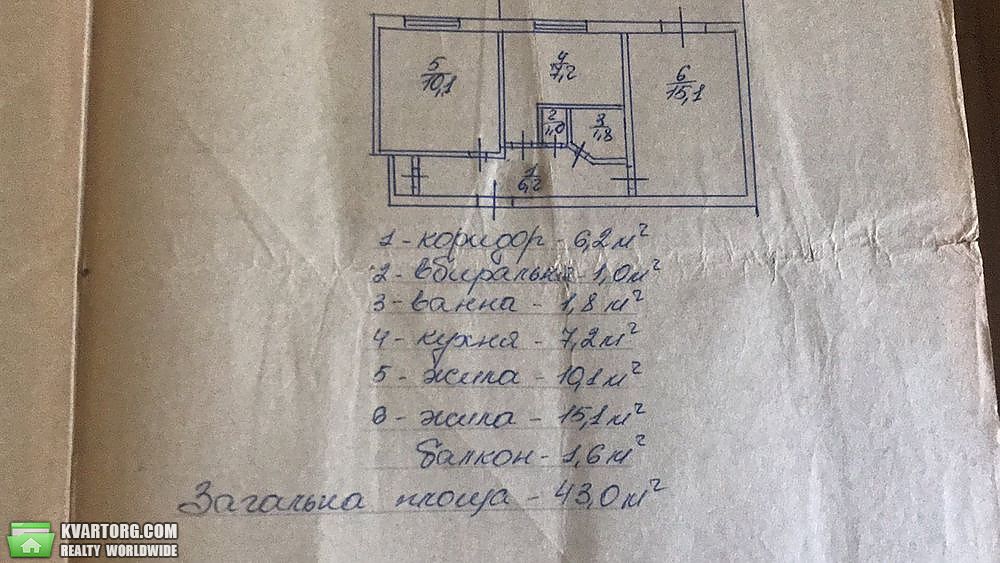 5 10,1
4 7,2
6 15,1
2 1,0
3 1,8
1 6,2
1 - коридор - 6,2 м²
2 - вбиральня - 1,0 м²
3 - ванна - 1,8 м²
4 - кухня - 7,2 м²
5 - жила - 10,1 м²
6 - жила - 15,1 м²
балкон - 1,6 м²
Загальна площа - 43,0 м²
KVARTORG.COM
REALTY WORLDWIDE